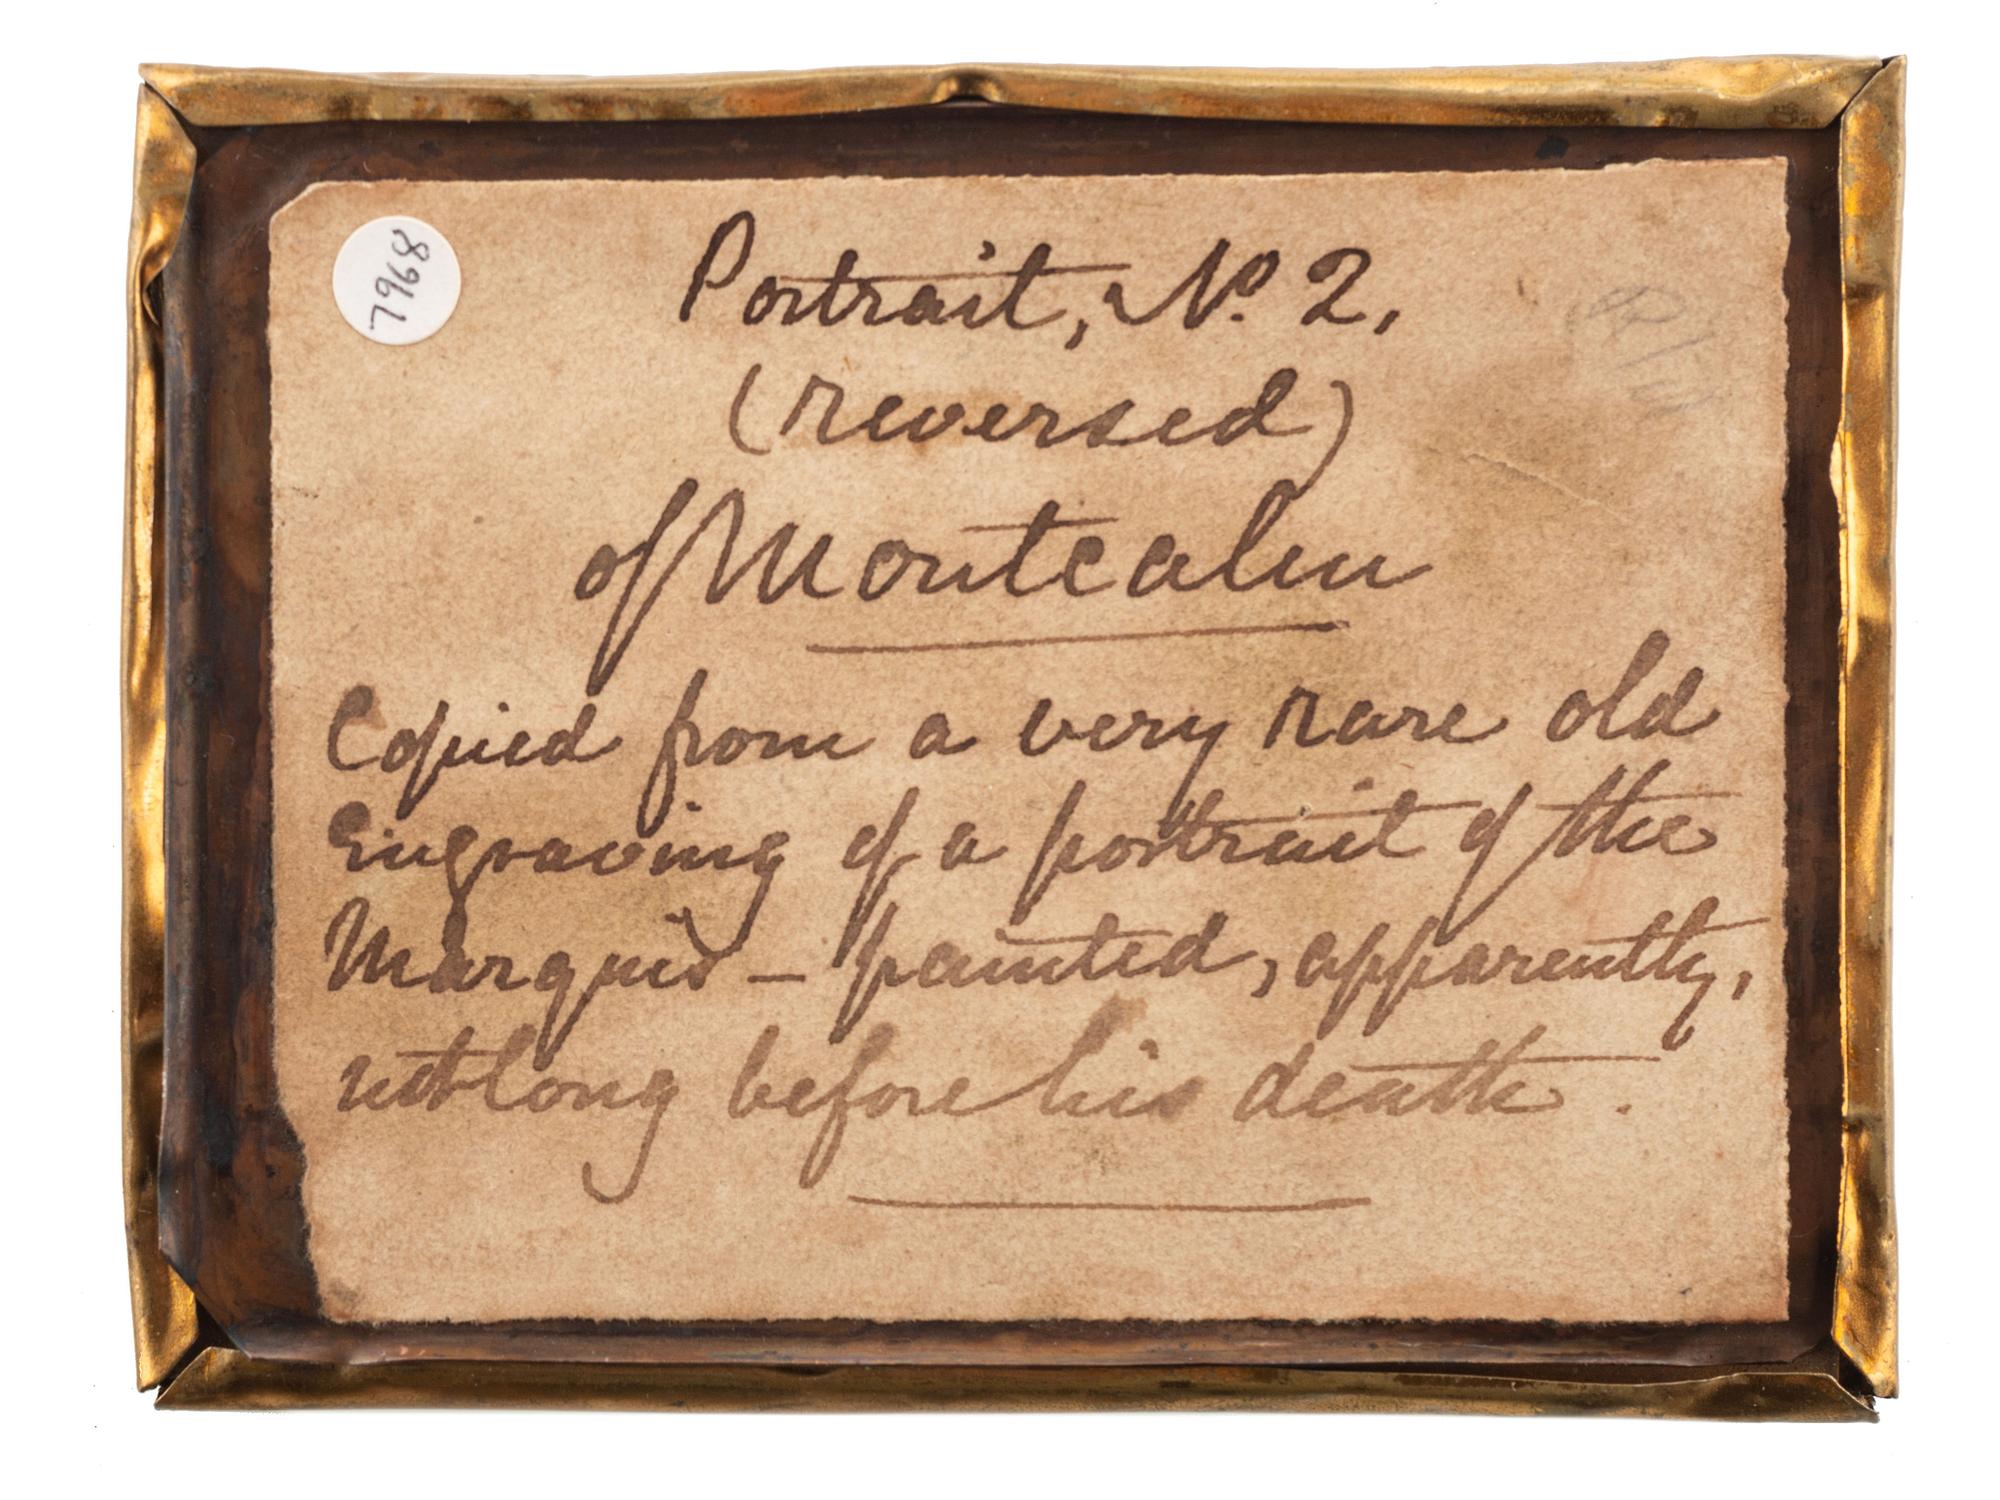 7968
Portrait, No. 2,
(reversed)
of Montcalm
Copied from a very rare old
Engraving of a portrait of the
Marquis – painted, apparently,
not long before his death.